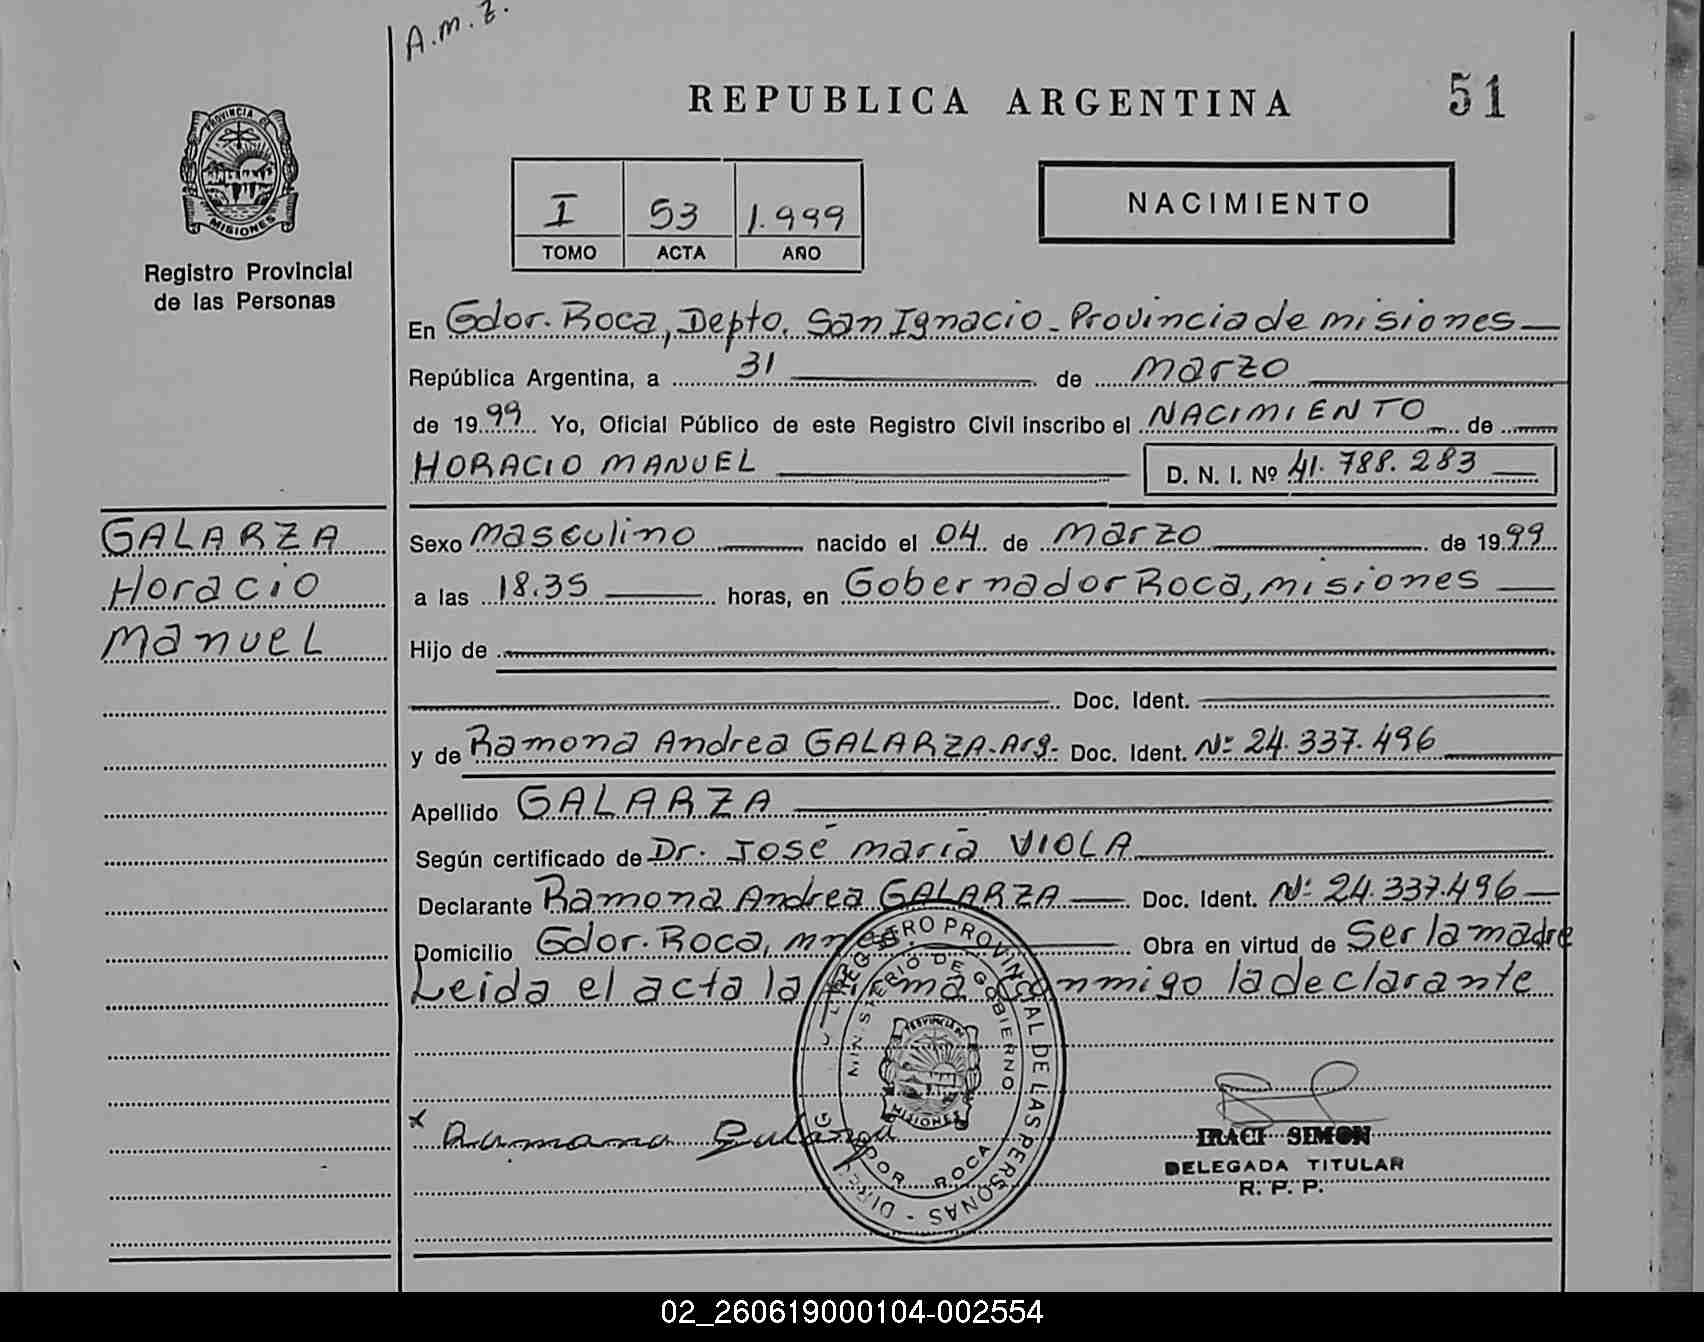 A.m.z.
REPUBLICA ARGENTINA
51
PROVINCIA DE
MISIONES
Registro Provincial
de las Personas
I 53 1.999
TOMO ACTA AÑO
NACIMIENTO
En Gdor. Roca, Depto. San Ignacio - Provincia de misiones
República Argentina, a 31 de marzo
de 1999 Yo, Oficial Público de este Registro Civil inscribo el NACIMIENTO de
HORACIO MANUEL D. N. I. Nº 41.788.283
GALARZA
Horacio
Manuel
Sexo masculino nacido el 04 de marzo de 1999
a las 18.35 horas, en Gobernador Roca, misiones
Hijo de
Doc. Ident.
y de Ramona Andrea GALARZA-Arg- Doc. Ident. Nº 24.337.496
Apellido GALARZA
Según certificado de Dr. José maria VIOLA
Declarante Ramona Andrea GALARZA Doc. Ident. Nº 24.337.496
Domicilio Gdor. Roca, mnes. Obra en virtud de Ser la madre
Leida el acta la firma conmigo la declarante
REGISTRO PROVINCIAL DE LAS PERSONAS -
MINISTERIO DE GOBIERNO
MISIONES
ROCA
x Ramona Galarza
IRACI SIMON
DELEGADA TITULAR
R. P. P.
02_260619000104-002554